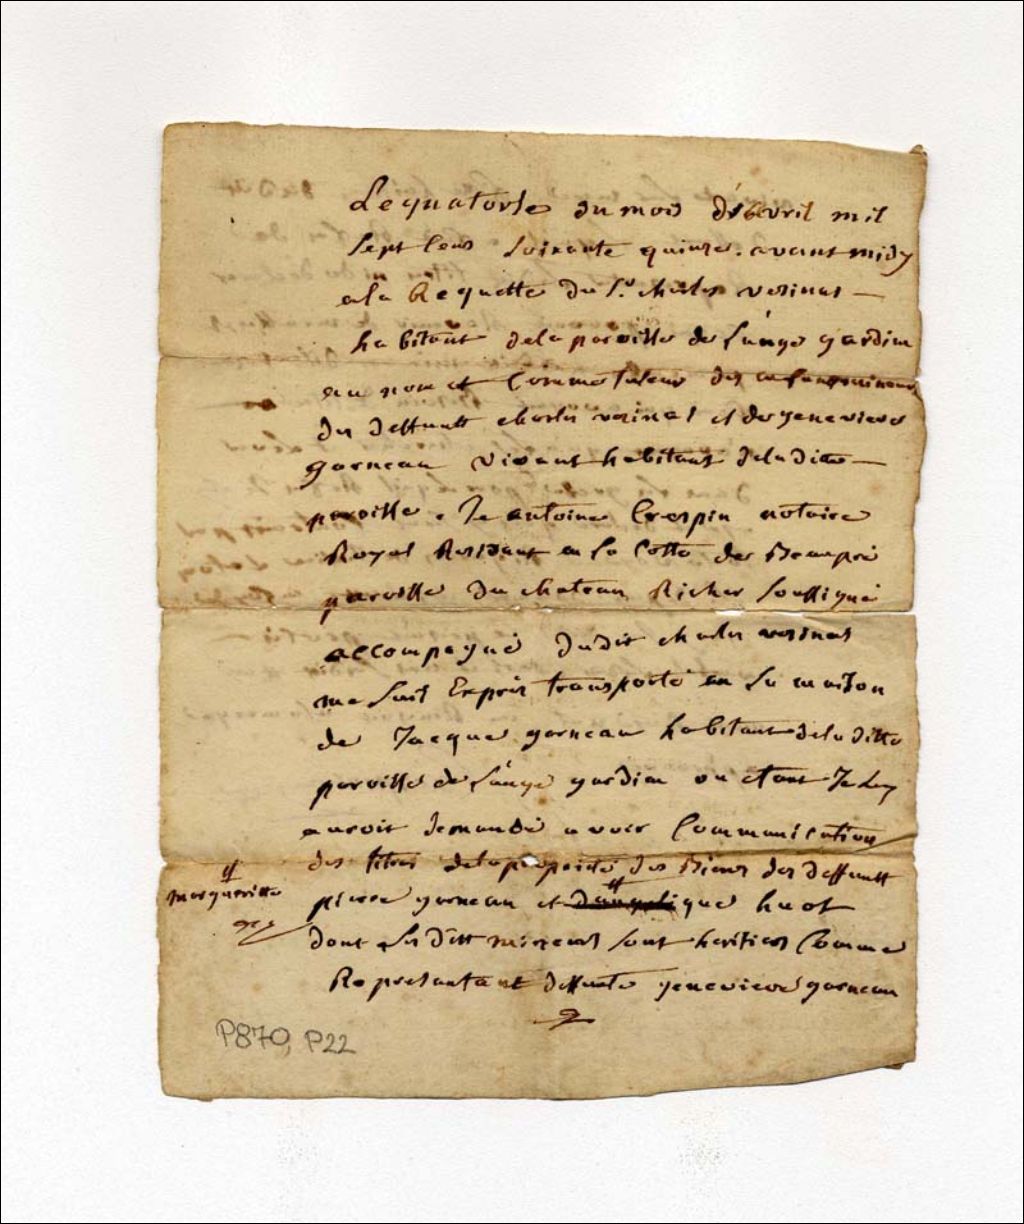 Lequatorse du mois d'avril mil
sept cens soixante quinze. avant midy
a la Requette du Sr. charles vesinat —
habitant dela paroisse de L'ange gardien
au nom et comme tuteur des enfans mineurs
du deffunt charles vesinat et de genevieve
garneau vivant habitant de la ditte —
paroisse. Je antoine Crespin notaire
Royal Residant en la Cotte de Beaupré
paroisse du chateau Richer soussigné
accompagné dudit charles vesinat
me suis Exprès transporté en la maison
de Jacque garneau habitant dela ditte
paroisse de L'ange gardien ou etant Je luy
aurois demandé avoir Communication
des titres dela propriété des Biens des deffunts
margueritte
pierre garneau et dangelique huot
dont les dits mineurs sont heritiers Comme
Representant deffunte genevieve garneau
P870, P22